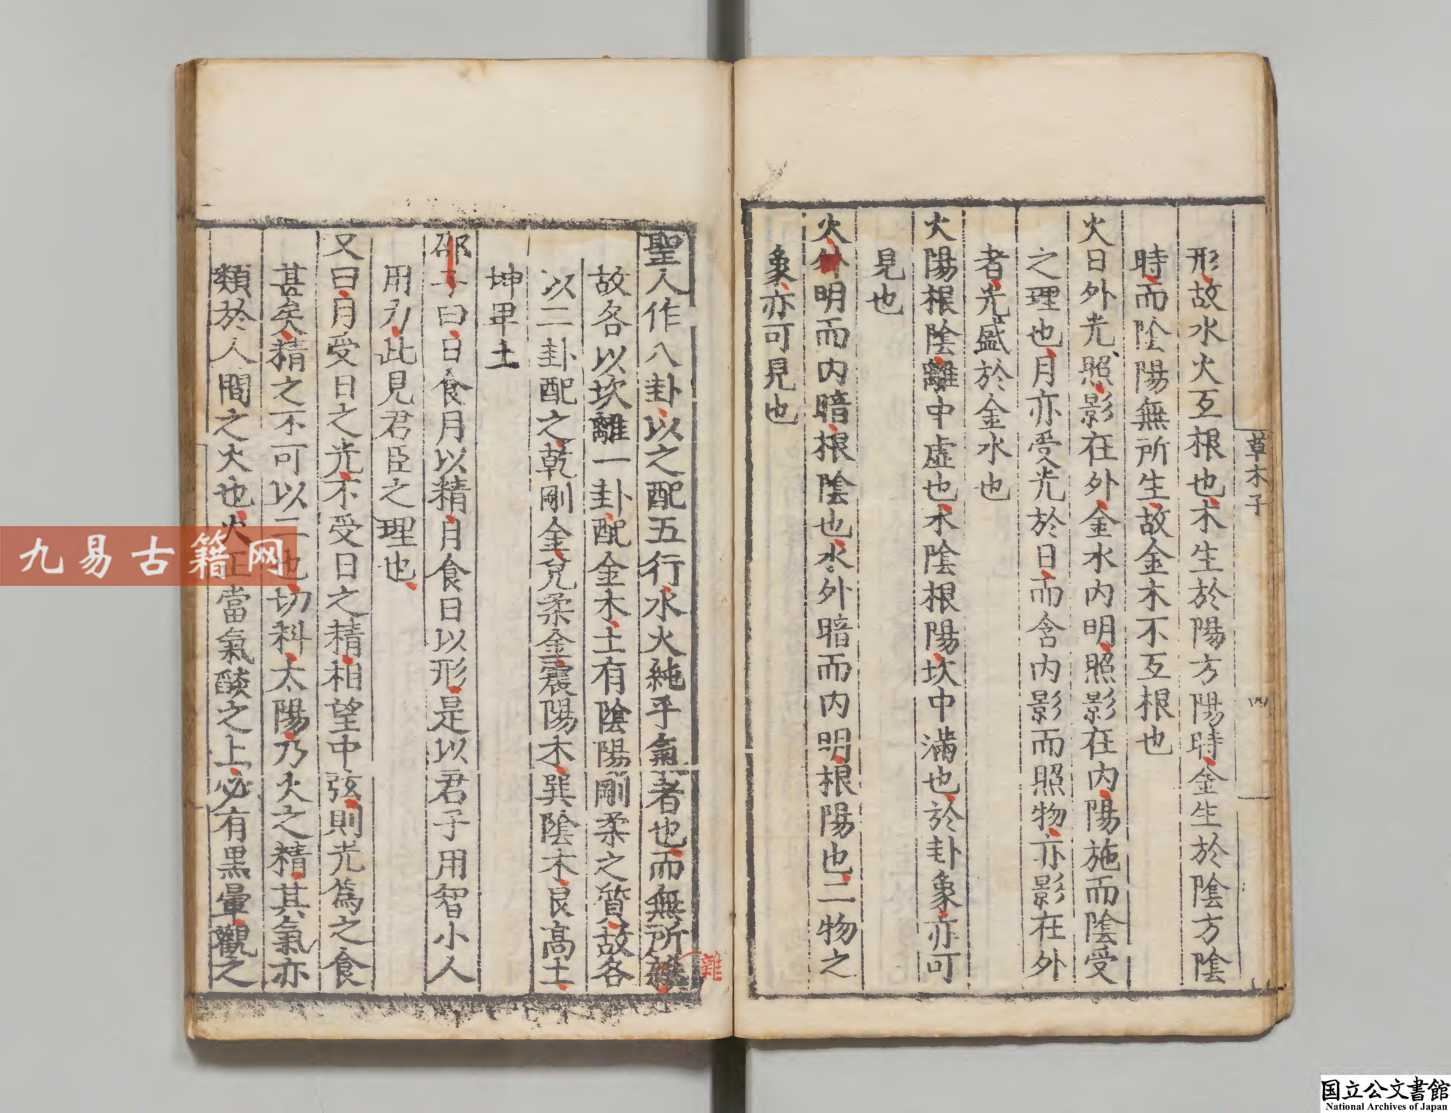 形故水火互根也木生於陽方陽時金生於陰方陰
時而陰陽無所生故金木不互根也
火日外光照影在外金水內明照影在內陽施而陰受
之理也月亦受光於日而含內影而照物亦影在外
者光盛於金水也
火陽根陰離中虛也水陰根陽坎中滿也於卦象亦可
見也
火外明而内暗根陰也水外暗而内明根陽也二物之
象亦可見也
草木子
四
聖人作八卦以之配五行水火純乎氣者也而無所雜
故各以坎離一卦配金木土有陰陽剛柔之質故各
以二卦配之乾剛金兌柔金震陽木巽陰木艮高土
坤卑土
邵子曰日食月以精月食日以形是以君子用智小人
用力此見君臣之理也
又曰月受日之光不受日之精相望中弦則光為之食
甚矣精之不可以二也切料太陽乃火之精其氣亦
類於人間之火也火正當氣燄之上必有黒暈觀之
雜
九易古籍网
国立公文書館
National Archives of Japan